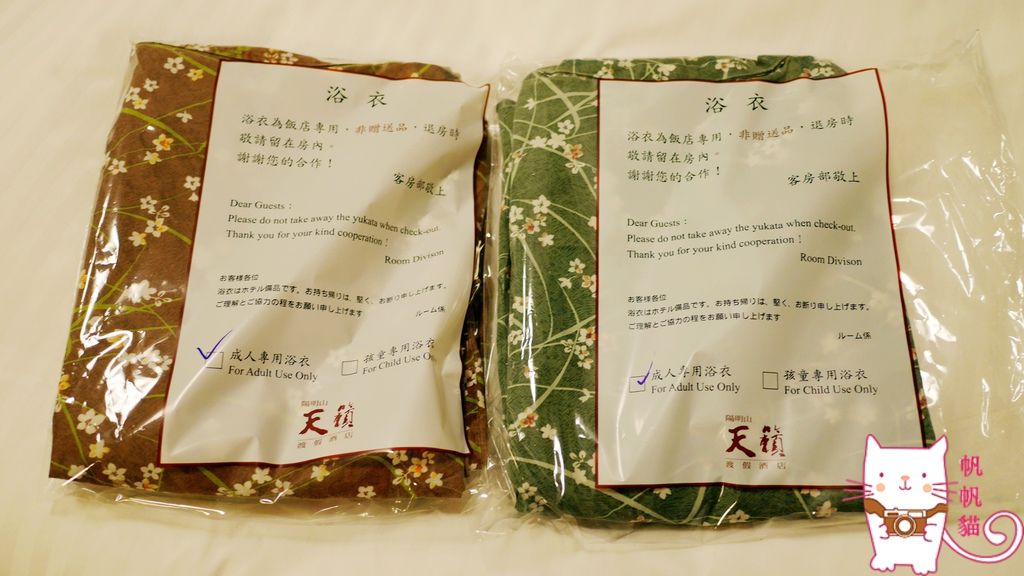 浴衣
浴衣為飯店專用，非贈送品，退房時
敬請留在房內。
謝謝您的合作！
客房部敬上
Dear Guests：
Please do not take away the yukata when check-out.
Thank you for your kind cooperation！
Room Divison
お客様各位
浴衣はホテル備品です。お持ち帰りは、堅く、お断り申し上げます。
ご理解とご協力の程をお願い申し上げます
ルーム係
成人專用浴衣 孩童專用浴衣
For Adult Use Only For Child Use O
陽明山
天籟
渡假酒店
浴衣
浴衣為飯店專用，非贈送品，退房時
敬請留在房內。
謝謝您的合作！
客房部敬上
Dear Guests：
Please do not take away the yukata when check-out.
Thank you for your kind cooperation！
Room Divison
お客様各位
浴衣はホテル備品です。お持ち帰りは、堅く、お断り申し上げます。
ご理解とご協力の程をお願い申し上げます
ルーム係
成人專用浴衣 孩童專用浴衣
For Adult Use Only For Child Use Only
陽明山
天籟
渡假酒店
帆帆貓